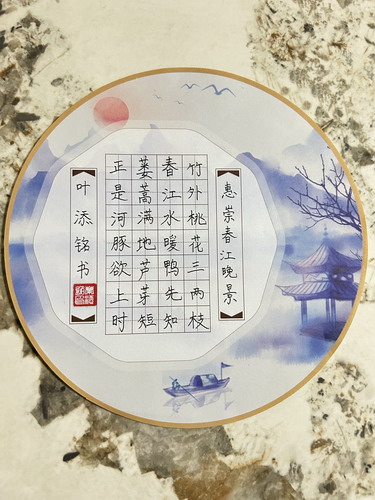 惠崇春江晚景
竹外桃花三两枝
春江水暖鸭先知
蒌蒿满地芦芽短
正是河豚欲上时
叶添铭书